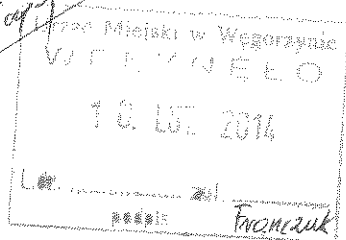 Urząd Miejski w Węgorzynie
WPŁYNĘŁO
10. LUT. 2014
L.dz. .................... zał. ....................
podpis Franczuk